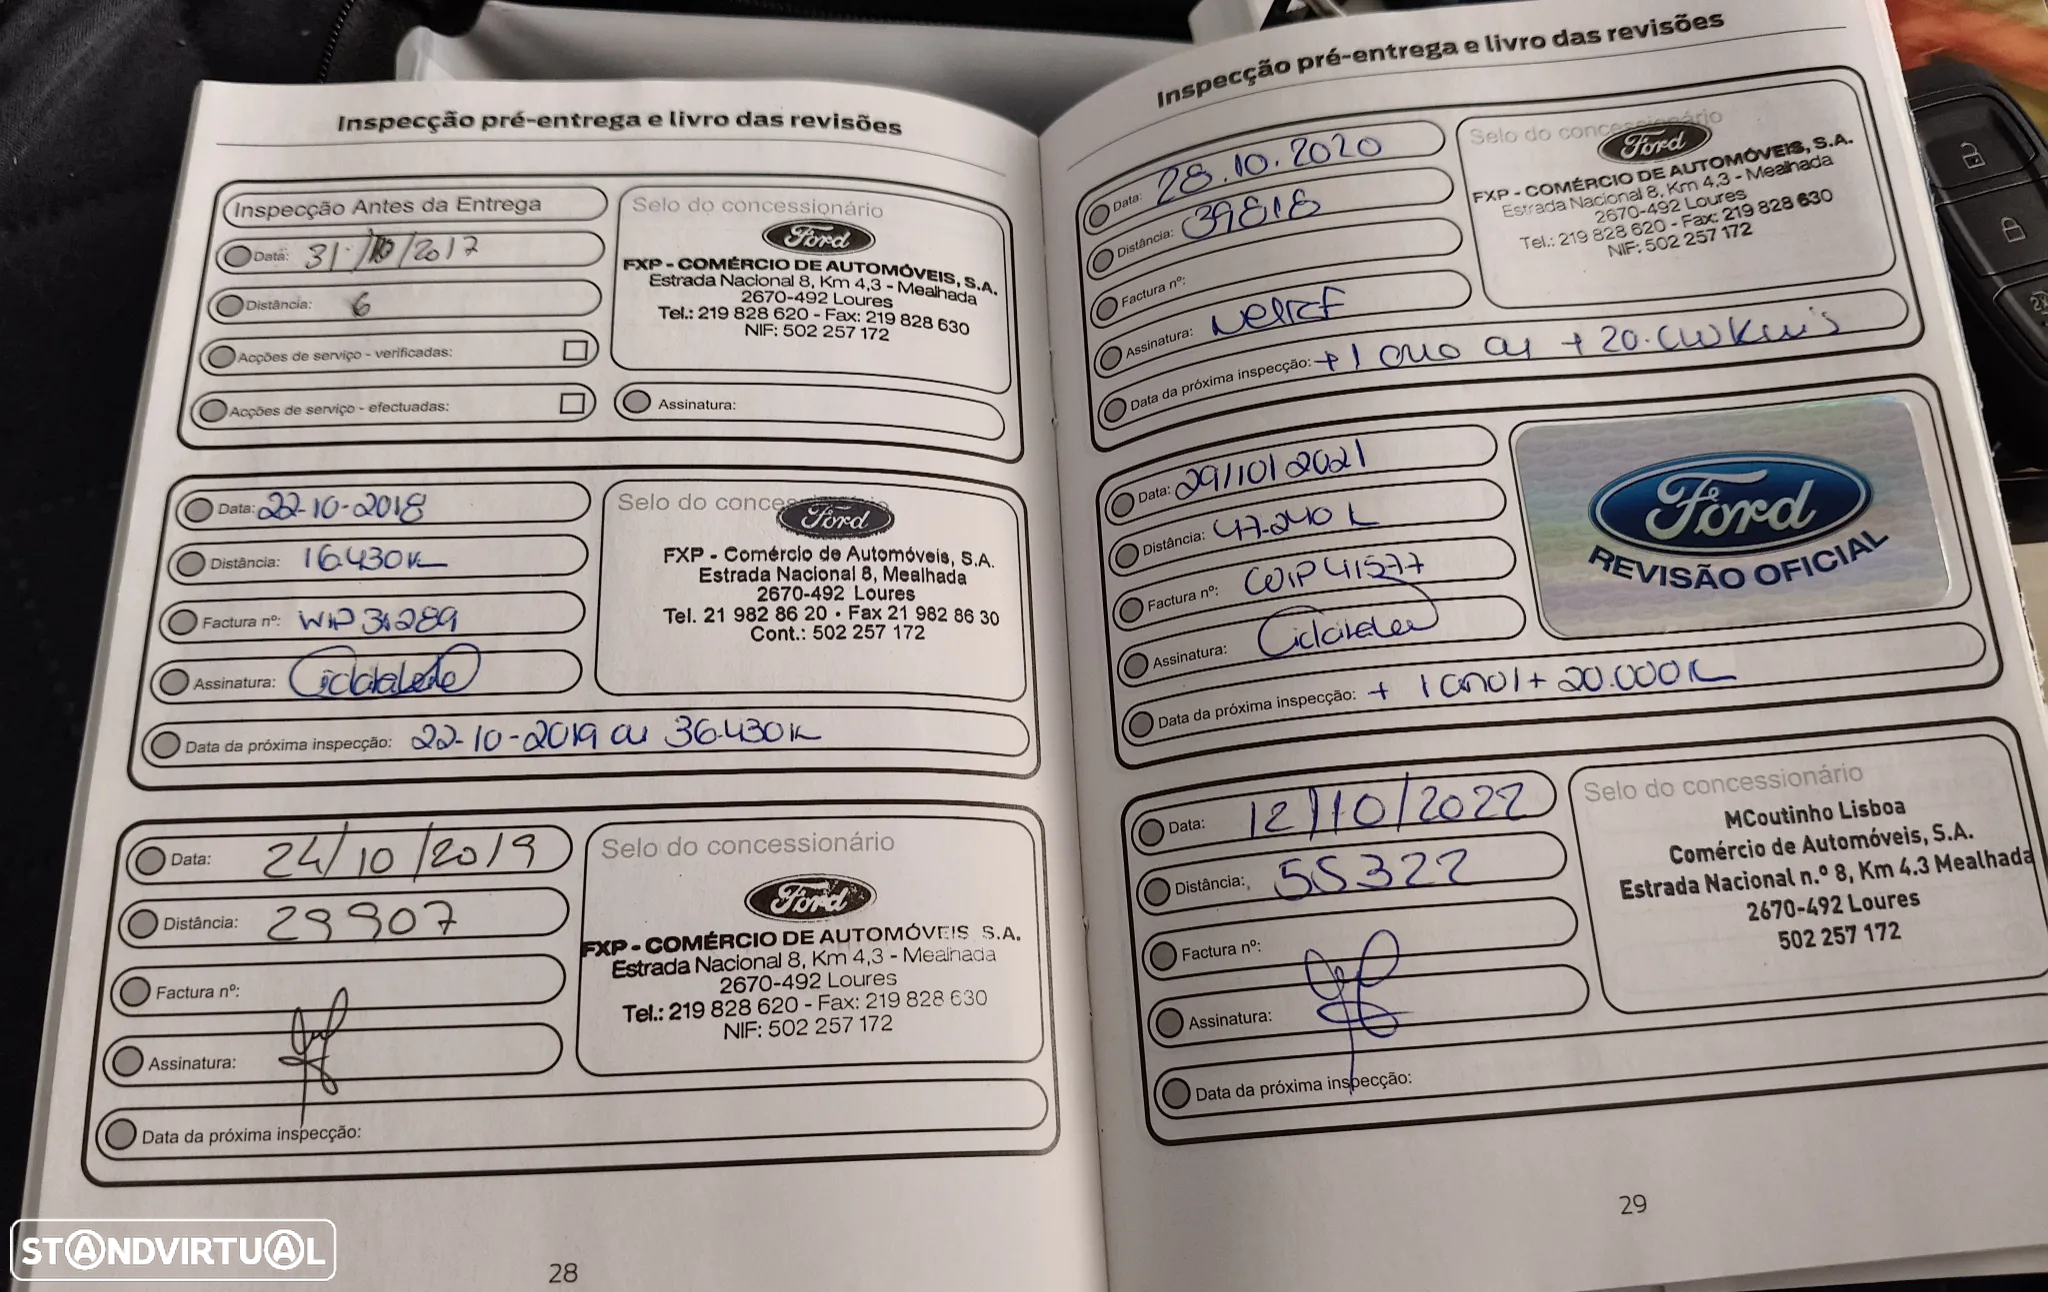 Inspecção pré-entrega e livro das revisões
Inspecção Antes da Entrega
Data: 31/10/2017
Distância: 6
Acções de serviço - verificadas:
Acções de serviço - efectuadas:
Selo do concessionário
Ford
FXP - COMÉRCIO DE AUTOMÓVEIS, S.A.
Estrada Nacional 8, Km 4,3 - Mealhada
2670-492 Loures
Tel.: 219 828 620 - Fax: 219 828 630
NIF: 502 257 172
Assinatura:
Data: 22-10-2018
Distância: 16.430K
Factura nº: WIP 31289
Assinatura:
Selo do concessionário
Ford
FXP - Comércio de Automóveis, S.A.
Estrada Nacional 8, Mealhada
2670-492 Loures
Tel. 21 982 86 20 • Fax 21 982 86 30
Cont.: 502 257 172
Data da próxima inspecção: 22-10-2019 ou 36.430K
Data: 24/10/2019
Distância: 29907
Factura nº:
Assinatura:
Selo do concessionário
Ford
FXP - COMÉRCIO DE AUTOMÓVEIS, S.A.
Estrada Nacional 8, Km 4,3 - Mealhada
2670-492 Loures
Tel.: 219 828 620 - Fax: 219 828 630
NIF: 502 257 172
Data da próxima inspecção:
28
Inspecção pré-entrega e livro das revisões
Data: 28.10.2020
Distância: 39818
Factura nº:
Assinatura:
Selo do concessionário
Ford
FXP - COMÉRCIO DE AUTOMÓVEIS, S.A.
Estrada Nacional 8, Km 4,3 - Mealhada
2670-492 Loures
Tel.: 219 828 620 - Fax: 219 828 630
NIF: 502 257 172
Data da próxima inspecção: + 1 ano ou + 20.000Km's
Data: 29/10/2021
Distância: 47.240K
Factura nº: WIP 41577
Assinatura:
Ford
REVISÃO OFICIAL
Data da próxima inspecção: + 1 ano / + 20.000K
Data: 12/10/2022
Distância: 55322
Factura nº:
Assinatura:
Selo do concessionário
MCoutinho Lisboa
Comércio de Automóveis, S.A.
Estrada Nacional n.º 8, Km 4.3 Mealhada
2670-492 Loures
502 257 172
Data da próxima inspecção:
29
STANDVIRTUAL